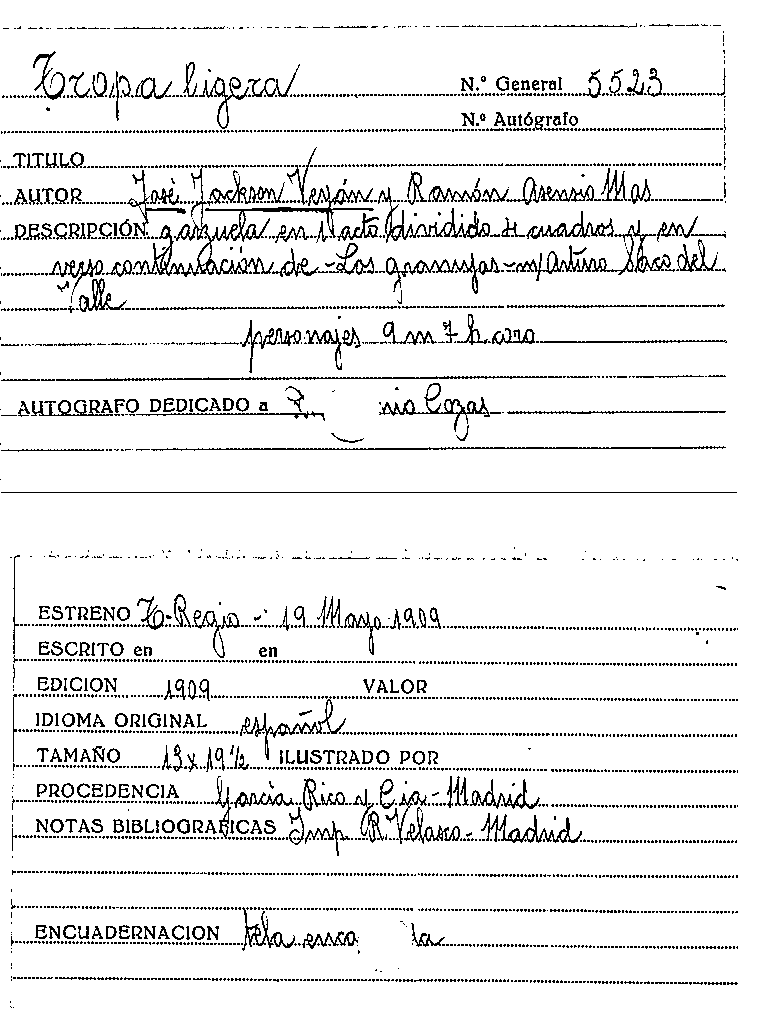 Tropa ligera
N.º General 5523
N.º Autógrafo
TITULO
AUTOR José Jackson Veyán y Ramón Asensio Mas
DESCRIPCIÓN zarzuela en 1 acto dividido 4 cuadros y en
verso continuación de -Los granujas- m/Arturo Saco del
Valle
personajes 9 m 7 h coro
AUTOGRAFO DEDICADO a Cozas
ESTRENO T. Regio - 19 Mayo 1909
ESCRITO en en
EDICION 1909 VALOR
IDIOMA ORIGINAL español
TAMAÑO 13 x 19 ½ ILUSTRADO POR
PROCEDENCIA García Rico y Cia - Madrid
NOTAS BIBLIOGRAFICAS Imp R Velasco - Madrid
ENCUADERNACION tela